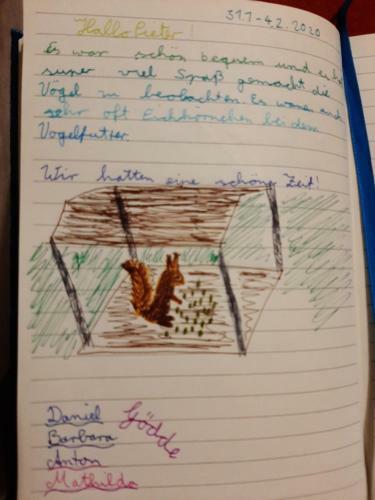 31.1-4.2.2020
Hallo Pieter!
Es war schön bequem und es hat
super viel Spaß gemacht die
Vögel zu beobachten. Es waren auch
sehr oft Eichhörnchen bei dem
Vogelfutter.
Wir hatten eine schöne Zeit!
Daniel Gödde
Barbara
Anton
Mathilda